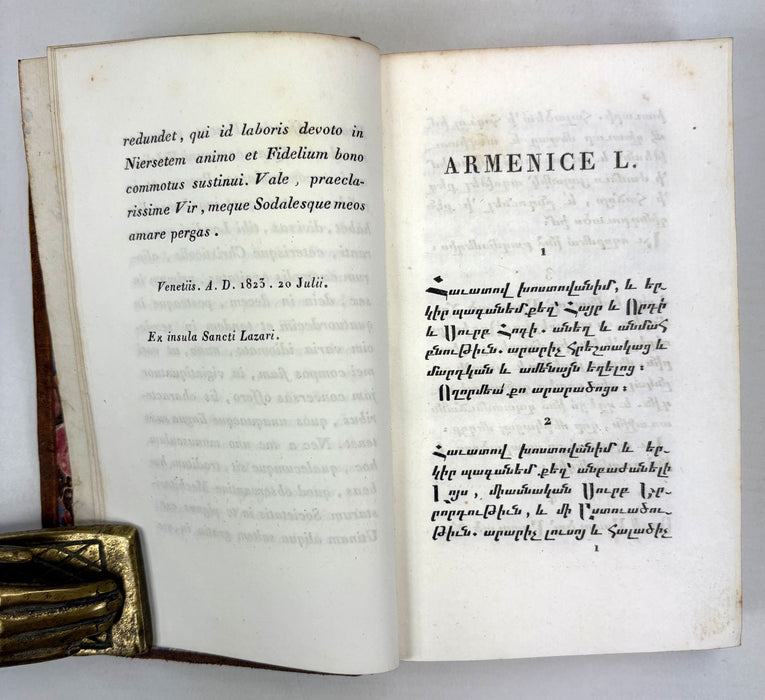 redundet, qui id laboris devoto in
Niersetem animo et Fidelium bono
commotus sustinui. Vale, praecla-
rissime Vir, meque Sodalesque meos
amare pergas.
Venetiis. A. D. 1823. 20 Julii.
Ex insula Sancti Lazari.
ARMENICE L.
1
Հաւատով խոստովանիմ, և եր-
կիր պագանեմ քեզ՝ Հայր և Որդի
և Սուրբ Հոգի. անեղ և անմահ
բնութիւն. արարիչ հրեշտակաց և
մարդկան և ամենայն եղելոց:
Ողորմեա՛ քո արարածոցս:
2
Հաւատով խոստովանիմ և եր-
կիր պագանեմ քեզ՝ անբաժանելի
Լոյս, միասնական Սուրբ Եր-
րորդութիւն, և մի Աստուածու-
թիւն. արարիչ լուսոյ և հալածիչ
1